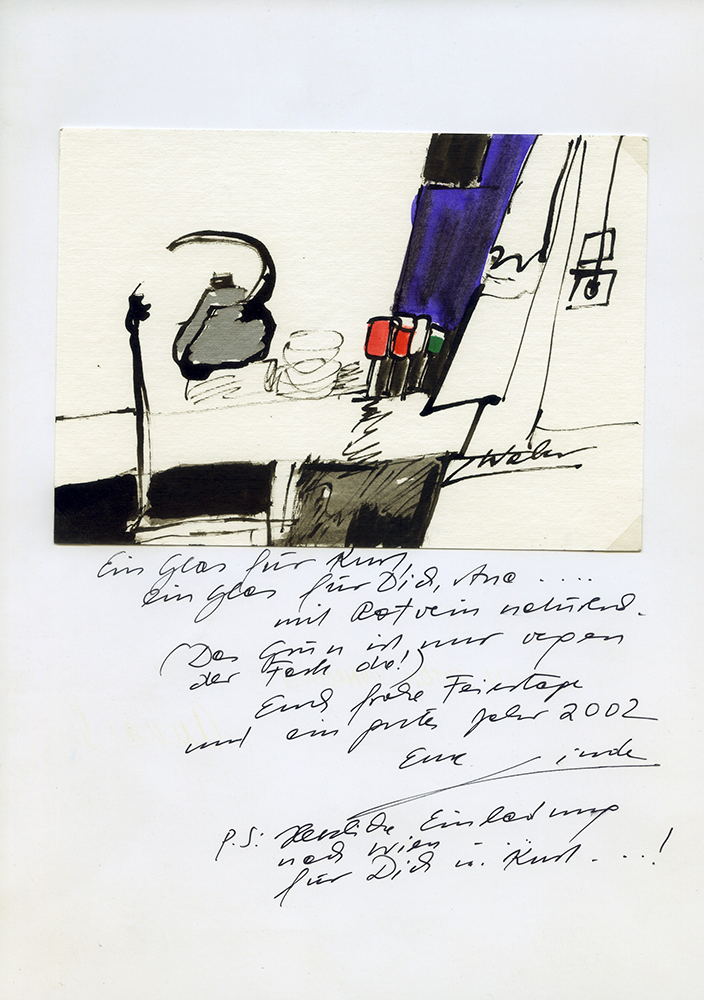 Ein Glas für Kurt,
ein Glas für Dich, Ana ....
mit Rotwein natürlich.
(Das Grün ist nur wegen
der Farbe da!)
Euch frohe Feiertage
und ein gutes Jahr 2002
Eure Linde
P.S: Herzliche Einladung
nach Wien ...
für Dich u. Kurt ....!